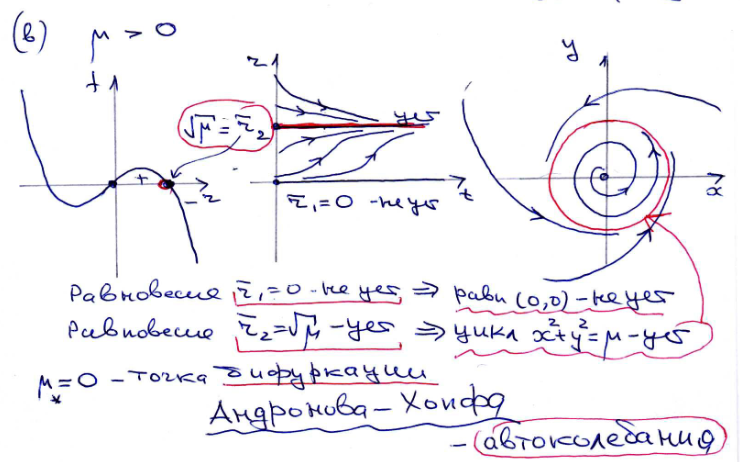 (в) μ > 0
f
r
√μ = r̄₂
уст
y
+
- r
r̄₁ = 0 - неуст
t
x
Равновесие r̄₁ = 0 - неуст ⇒ равн (0,0) - неуст
Равновесие r̄₂ = √μ - уст ⇒ цикл x² + y² = μ - уст
μ* = 0 - точка бифуркации
Андронова - Хопфа
- автоколебания